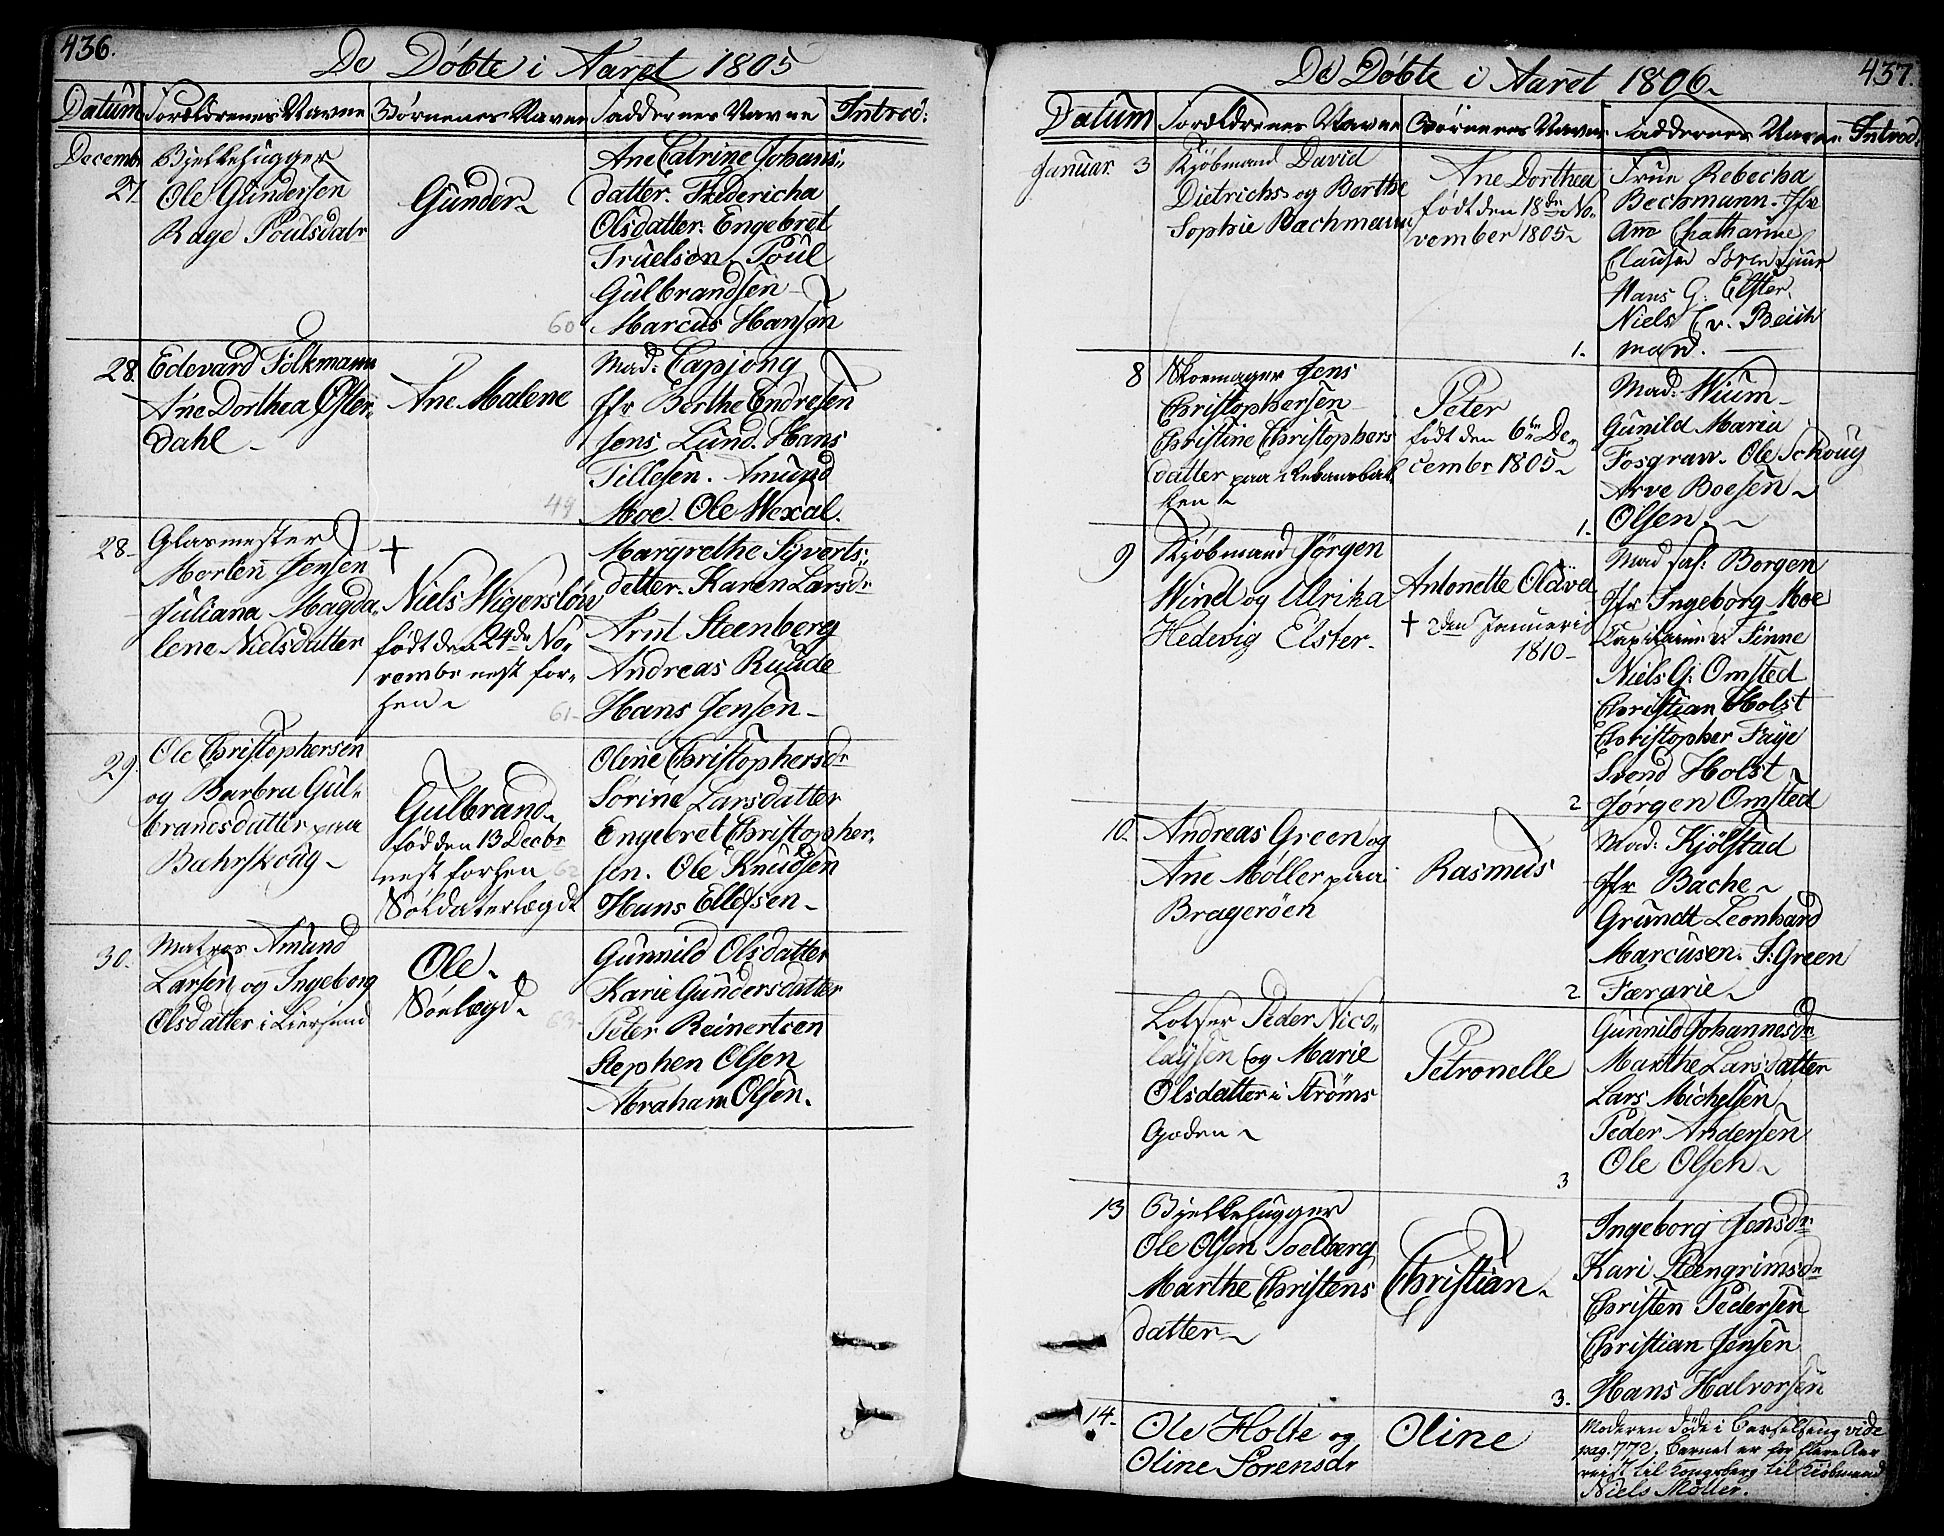 436.
De Döbte i Aaret 1805
Datum Forældrenes Navne Börnenes Navne Faddernes Navne Introd:
Decemb.
27
Bjelkehugger
Ole Gundersen
Rage Poulsdatr
Gunder
Ane Catrine Johans-
datter. Fridericha
Olsdatter. Engebret
Truelsen. Poul
Gulbrandsen
Marcus Hansen
60
28.
Edevard Folkmann
Ane Dorthea Öster-
dahl
Ane Malene
Mad: Capjong
Jfr Berthe Endresen
Jens Lund. Hans
Tillesen. Amund
Moe. Ole Wexal.
49
28-
Glasmester
Morten Jensen
Juliana Magda-
lene Nielsdatter
†
Niels Wigerslöw
född den 24de No-
vembr nest for-
hen
61-
Margrethe Syverts-
datter. Karen Larsdr
Arnt Steenberg
Andreas Ruude
Hans Jensen
29.
Ole Christophersen
og Barbra Gul-
brandsdatter paa
Bæhrskoug
Gulbrand
född den 13 Decbr
nest forhen 62
Soldaterlægdt
Oline Christophersdr
Sörine Larsdatter
Engebret Christopher-
sen. Ole Knudsen
Hans Ellefsen
30.
Matros Amund
Larsen og Ingeborg
Olsdatter i Liersund
Ole
Söelægd
63-
Gunnild Olsdatter
Karie Gundersdatter
Peter Reinertsen
Stephen Olsen
Abraham Olsen.
437.
De Döbte i Aaret 1806
Datum Forældrenes Navne Börnenes Navne Faddernes Navne Introd:
Januar. 3
Kjöbmand David
Dietrichs og Berthe
Sophie Bachmann
Ane Dorthea
född den 18de No-
vember 1805
Frue Rebecha
Bechmann. Jfr
Ane Chatharine
Clausen
Hans G: Elster.
Niels
mand.
1.
8
Skoemager Jens
Christophersen
Christine Christophers
datter paa
ken
Peter
född den 6te De-
cember 1805
Mad: Wium
Gunild Maria
Fosgraw. Ole Schoug
Arve Boesen
Olsen.
1.
9
Kjöbmand Jörgen
Wind og Ulrika
Hedevig Elster.
Antonette Olava
† 2den Januari
1810-
Mad sal: Borgen
Jfr Ingeborg Moe
Finne
Niels G: Omsted
Christian Holst
Christopher Faye
Svend Holst
Jörgen Omsted
2
10.
Andreas Green og
Ane Möller paa
Brageröen
Rasmus
Mad: Kjölstad
Jfr Bache
Grundt Leonhard
Marcusen. S: Green
Færarie
2
Lotser Peder Nico-
laysen og Marie
Olsdatter i Ströms
Goden
Petronelle
Gunnild Johannesdr
Marthe Larsdatter
Lars Michelsen
Peder Andersen
Ole Olsen
3
13
Bjelkehugger
Ole Olsen Soelberg
Marthe Christens
datter
Christian
Ingeborg Jensdr
Kari Steengrimsdr
Christen Pedersen
Christian Jensen
Hans Halvorsen
3.
14.
Ole Holte og
Oline Sörensdr
Oline
Moderen döde i Barselseng vide
pag. 772. Barnet er for flere Aar
reist til Kongsberg til Kiöbmand
Niels Möller.